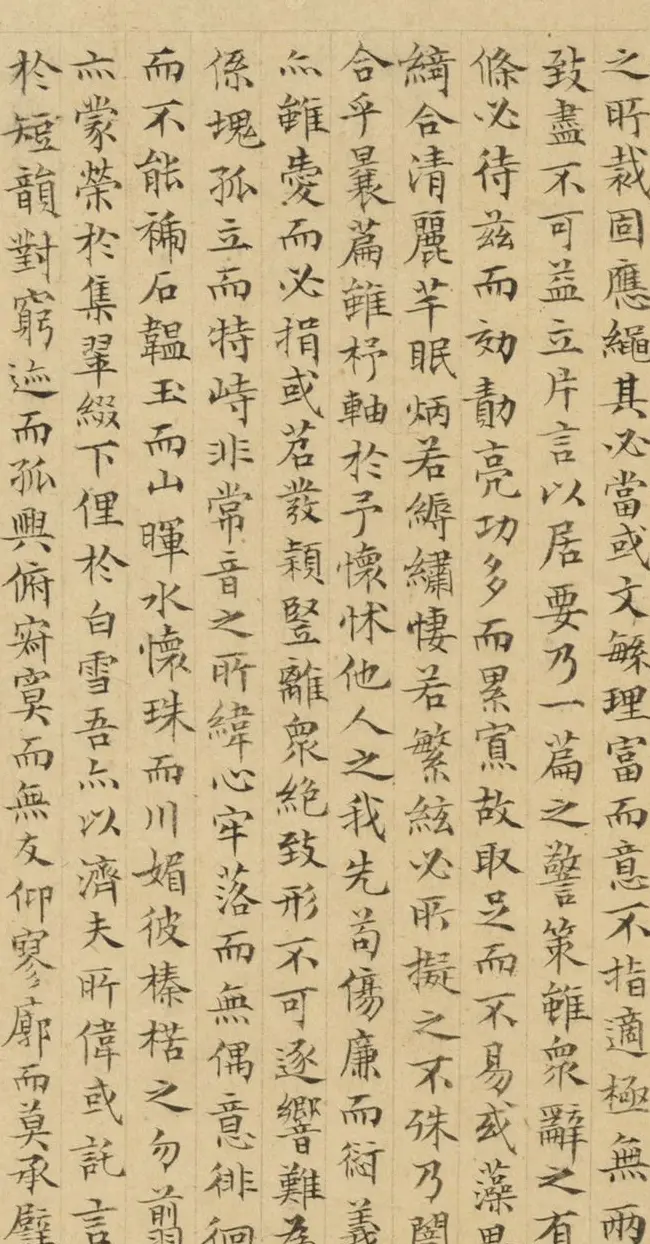 之所裁固應繩其必當或文緐理富而意不指適極無兩
致盡不可益立片言以居要乃一篇之警策雖眾辭之有
條必待茲而効勣亮功多而累寡故取足而不易或藻思
綺合清麗芊眠炳若縟繡悽若繁絃必所擬之不殊乃闇
合乎曩篇雖杼軸於予懷怵他人之我先苟傷廉而愆義
亦雖愛而必捐或苕發穎豎離眾絕致形不可逐響難為
係塊孤立而特峙非常音之所緯心牢落而無偶意徘徊
而不能褫石韞玉而山暉水懷珠而川媚彼榛楛之勿翦
亦蒙榮於集翠綴下俚於白雪吾亦以濟夫所偉或託言
於短韻對窮迹而孤興俯寂寞而無友仰寥廓而莫承